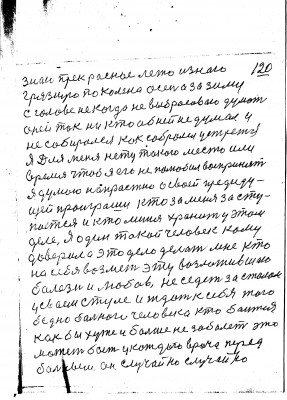 120
знаи прекрасное лето из него
грязную по колена осен а за зиму
с голове некогда не выбрасоваю думат
о ней так ни кто об ней не думал и
не собирался как собрался устретет
Я Для меня нету такого место или
время чтоб я его не полюбил воспринят
Я думаю напрасно о своей предиду-
щей проиграши кто за меня засту-
пается и кто меня хранит у этом
деле, Я один такой человек кому
доверила это дело делат мне кто
на себя возмет эту возложившаю
болези и любов, не седет за столом
у сваем стуле и ждат к себя того
бедно болного человика кто боится
как бы хуже и болше не заболет это
можит быт у каждого врача перед
болным он случайно случайно